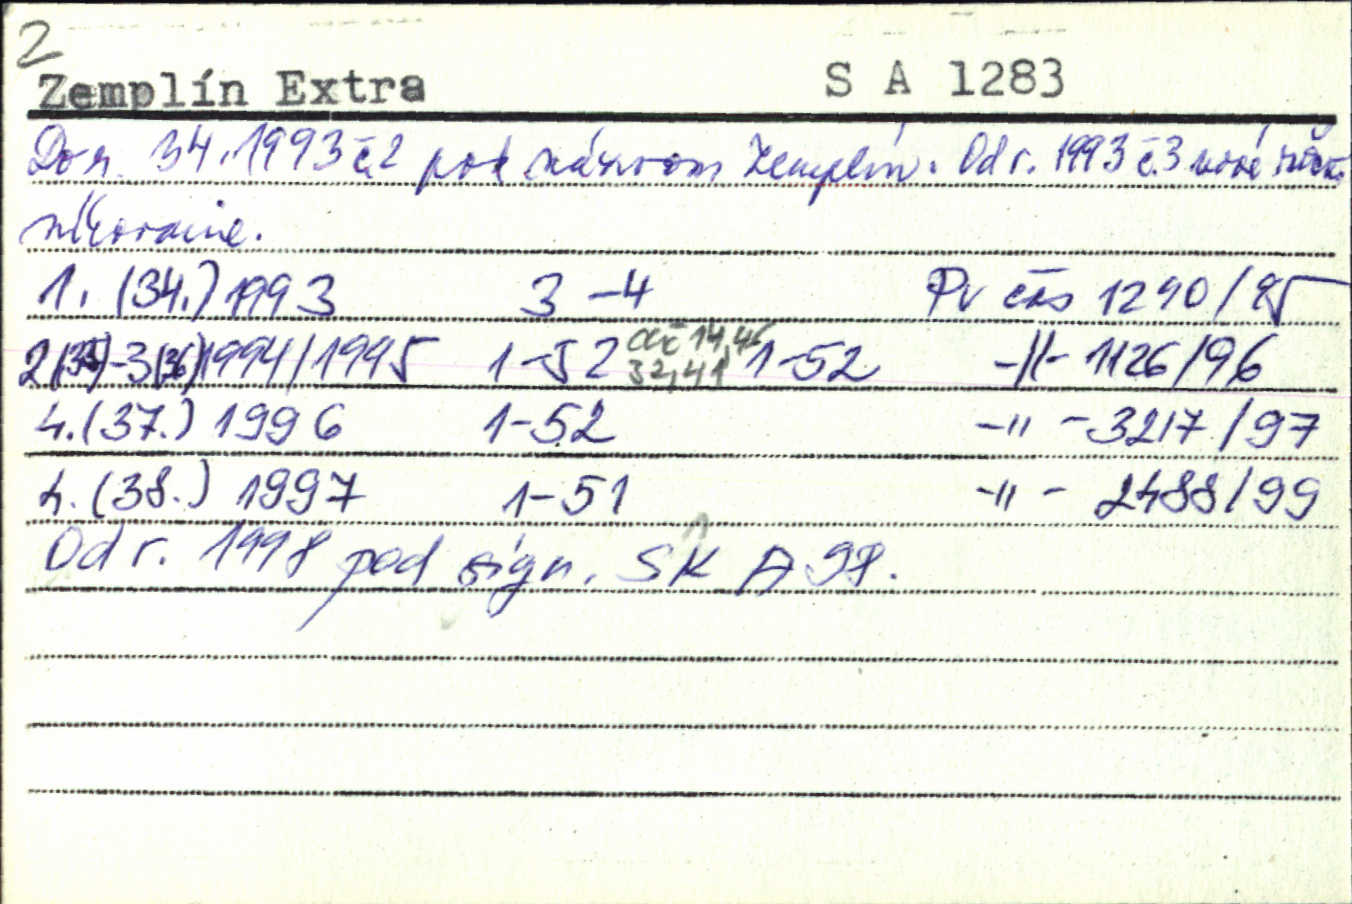 2
Zemplín Extra S A 1283
Do r. 34.1993 č.2 pod názvom Zemplín. Od r. 1993 č.3 nové roč.
níkovanie.
1. (34.) 1993 3-4 Pr čas 1290/95
2(35)-3(36)1994/1995 1-52 14,46 1-52 -||- 1126/96
32,41
4.(37.) 1996 1-52 -"- 3217/97
4.(38.) 1997 1-51 -"- 2488/99
Od r. 1998 pod sign. SK A 98.